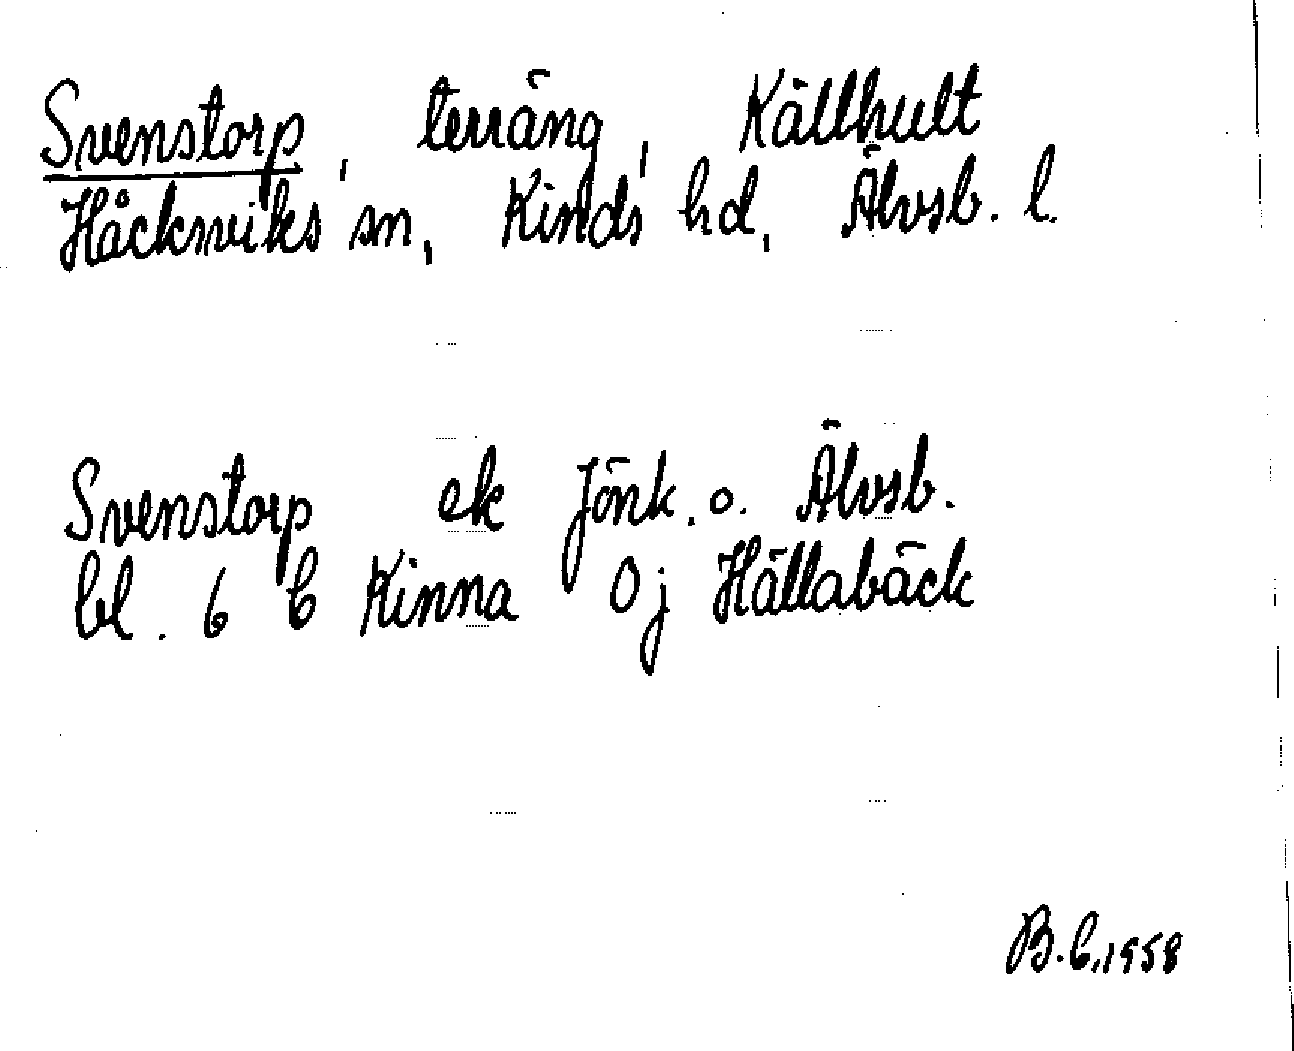 Svenstorp, terräng, Källhult
Håcksviks sn, Kinds hd, Älvsb. l.
Svenstorp ek Jönk. o. Älvsb.
bl. 6 C Kinna 0j Hällabäck
B.C. 1958